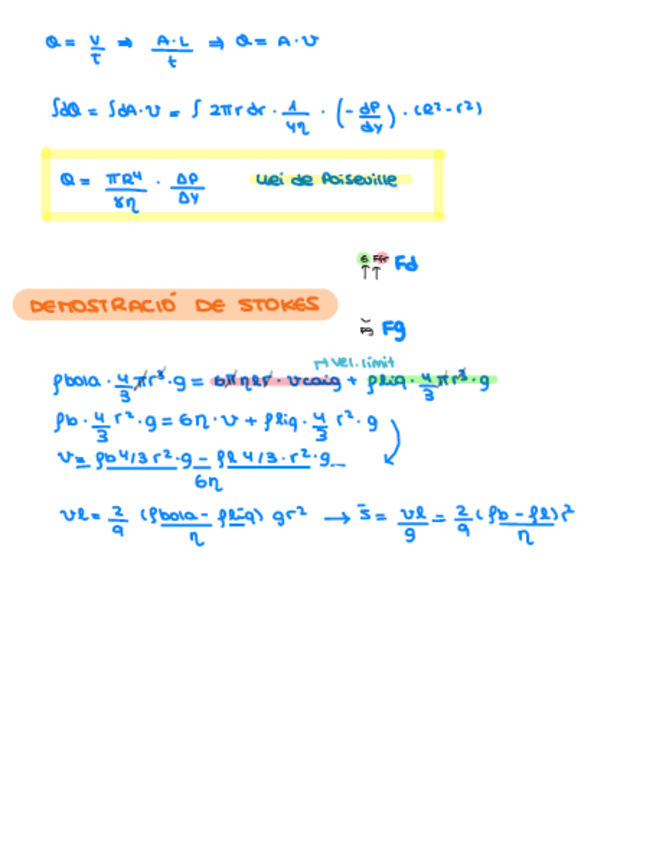 Q = V/t ⇒ A·L/t ⇒ Q = A·v
∫dQ = ∫dA·v = ∫ 2πr dr · 1/4η · (-dP/dy) · (R²-r²)
Q = πR⁴/8η · ΔP/Δy Llei de Poiseuille
Fd
DEMOSTRACIÓ DE STOKES
Fg
vel. límit
ρbola · 4/3 πr³ · g = 6πηr · vcaig + ρliq · 4/3 πr³ · g
ρb · 4/3 r² · g = 6η · v + ρliq · 4/3 r² · g
v = ρb 4/3 r² · g - ρl 4/3 · r² · g / 6η
vl = 2/9 (ρbola - ρliq)/η gr² → s̄ = vl/g = 2/9 (ρb - ρl)r²/η